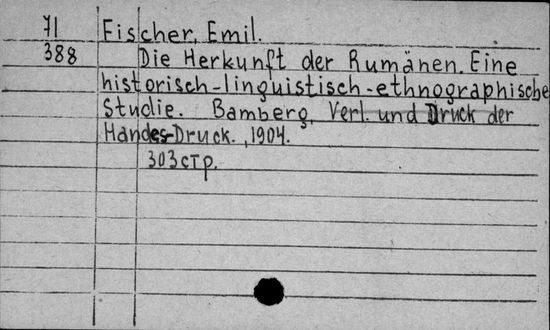 71 Fischer, Emil.
388 Die Herkunft der Rumänen. Eine
historisch-linguistisch-ethnographische
Studie. Bamberg, Verl. und Druck der
Handes-Druck., 1904.
303 стр.